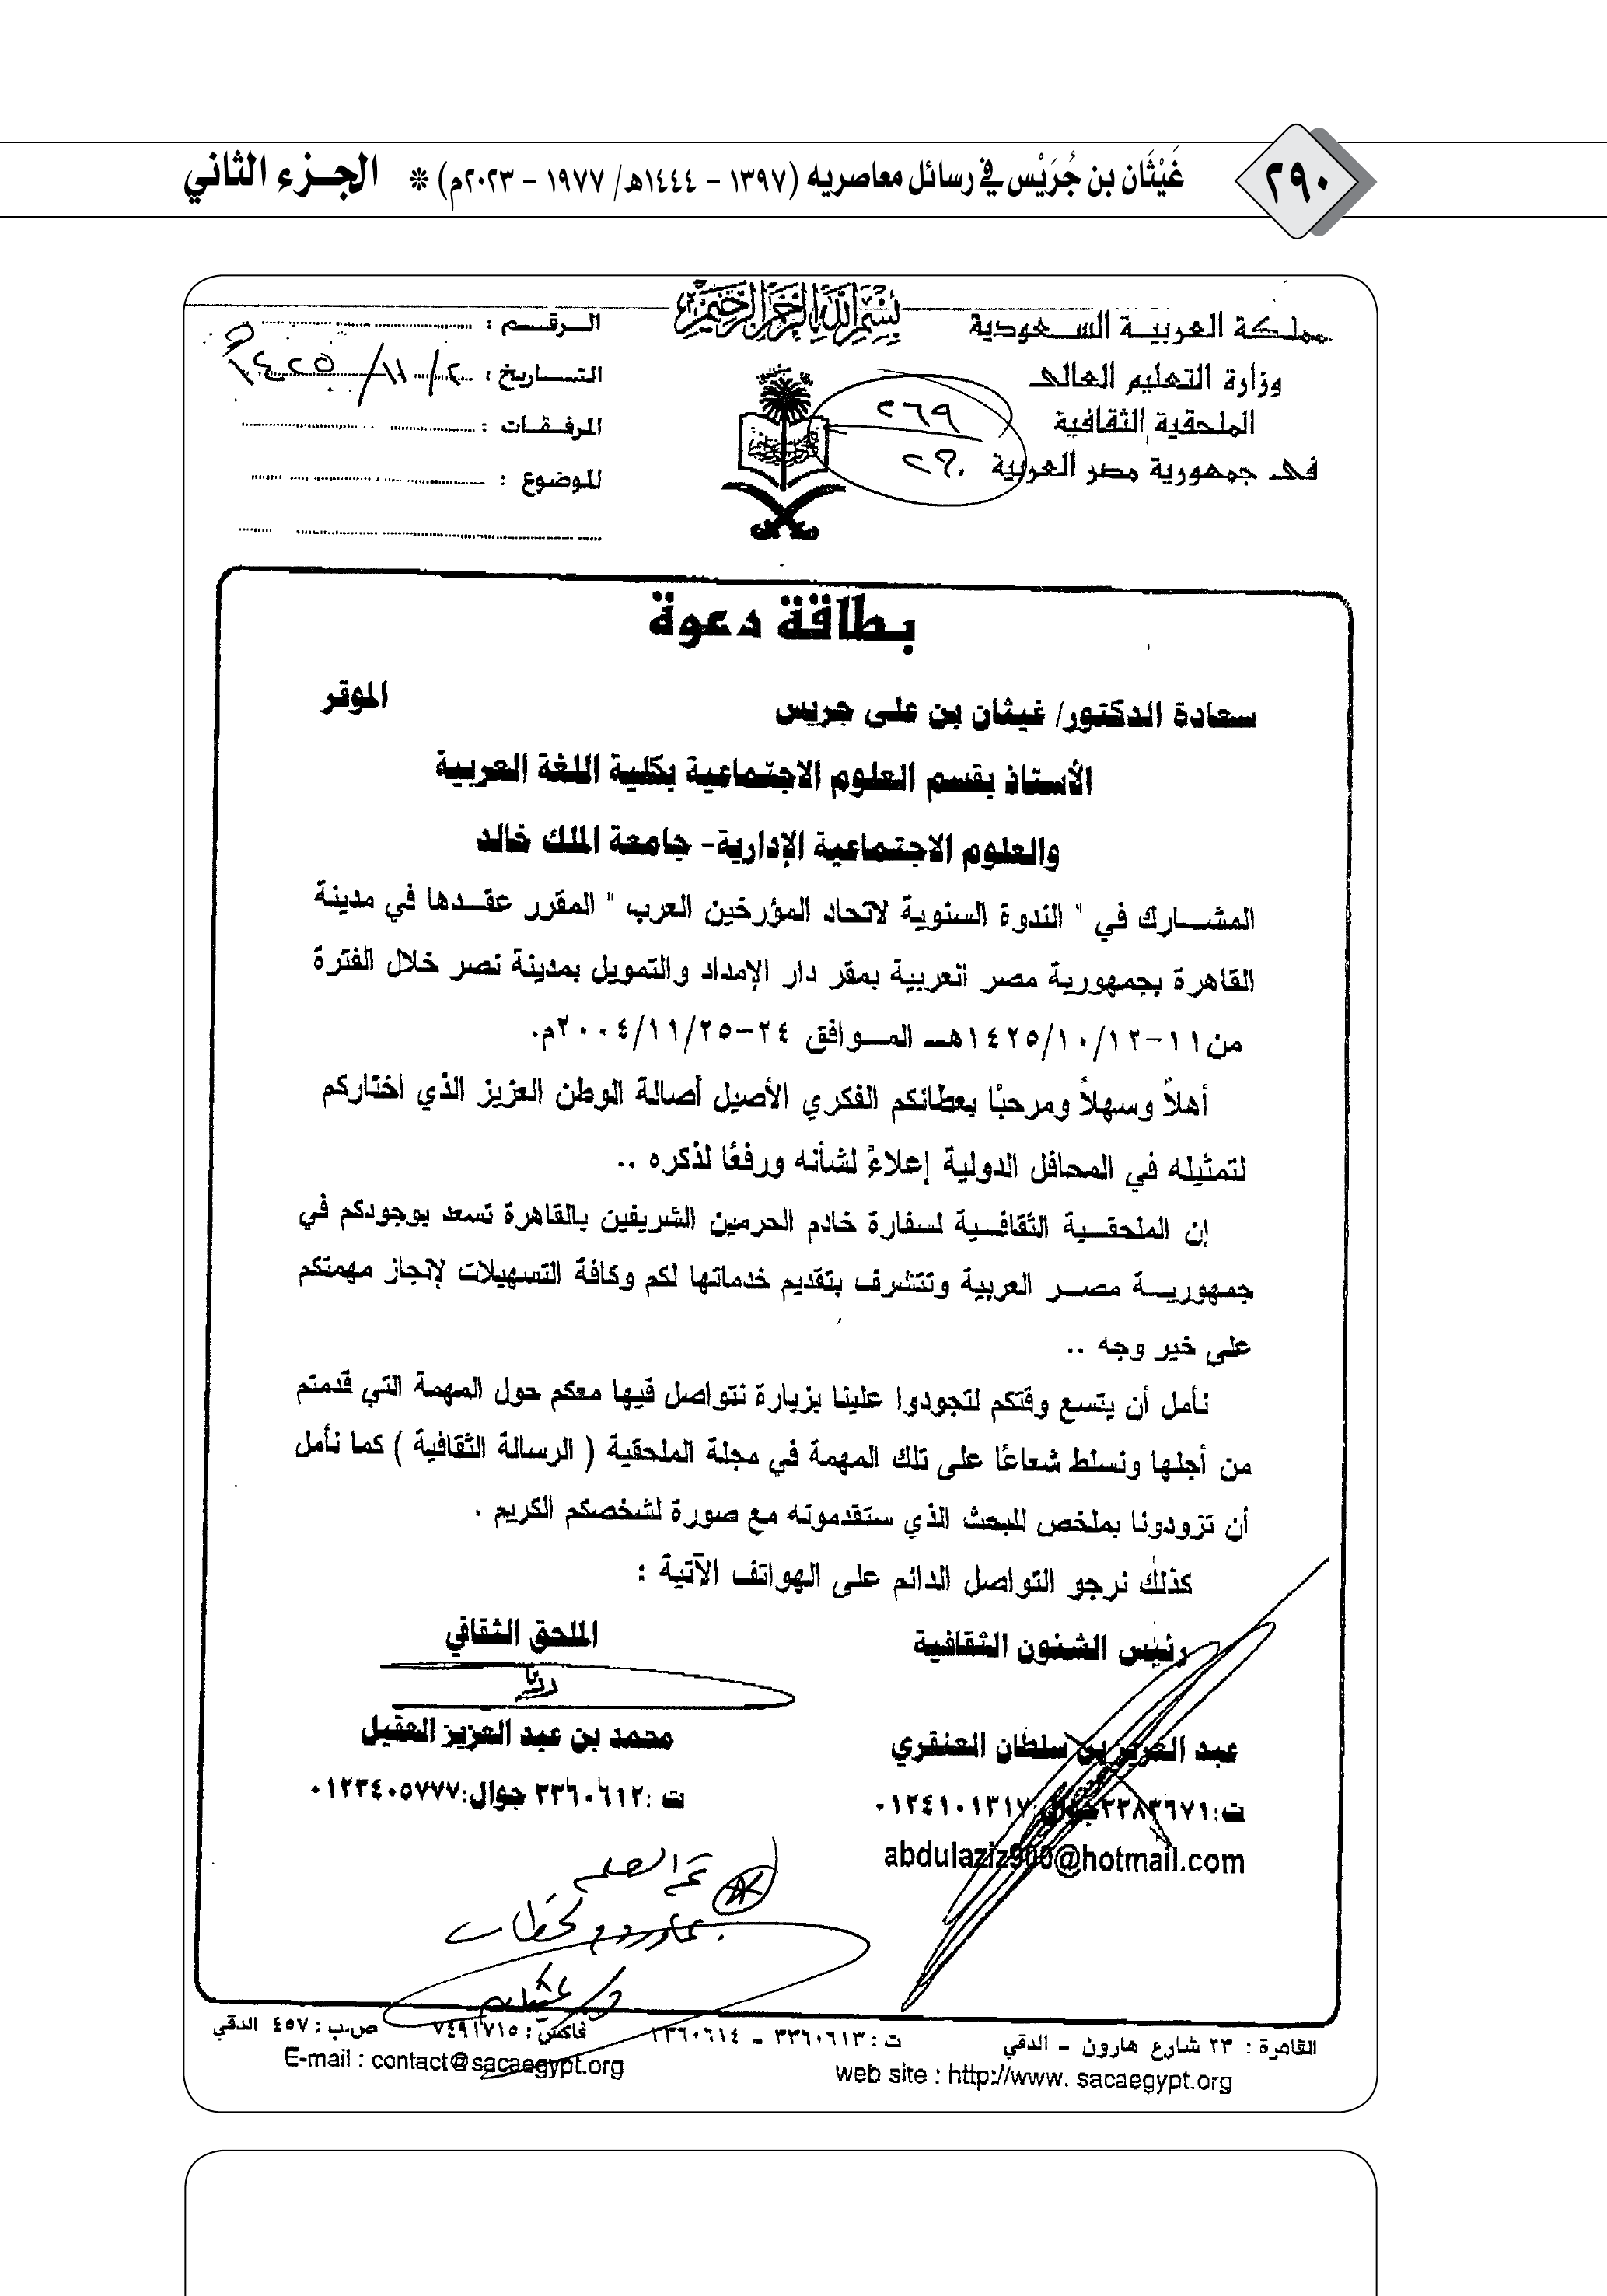 ٢٩٠
غَيْثَان بن جُرَيْس في رسائل معاصريه (١٣٩٧ - ١٤٤٤هـ/ ١٩٧٧ - ٢٠٢٣م) * الجــزء الثاني
بسم الله الرحمن الرحيم
مملكة العربيــة الســعودية
وزارة التعليم العالى
الملحقية الثقافية
فى جمهورية مصر العربية
٢٦٩
٢٩٠
الــرقــم :
التــاريخ : ٢ / ١١ / ١٤٢٥هـ
المرفـقـات :
الموضوع :
بطاقة دعوة
سعادة الدكتور/ غيثان بن على جريس الموقر
الأستاذ بقسم العلوم الاجتماعية بكلية اللغة العربية
والعلوم الاجتماعية الإدارية- جامعة الملك خالد
المشــارك في " الندوة السنوية لاتحاد المؤرخين العرب " المقرر عقــدها في مدينة
القاهرة بجمهورية مصر العربية بمقر دار الإمداد والتمويل بمدينة نصر خلال الفترة
من ١١-١٤٢٥/١٠/١٢هــ المــوافق ٢٤-٢٠٠٤/١١/٢٥م.
أهلاً وسهلاً ومرحبًا بعطائكم الفكري الأصيل أصالة الوطن العزيز الذي اختاركم
لتمثيله في المحافل الدولية إعلاءً لشأنه ورفعًا لذكره ..
إن الملحقــية الثقافــية لسفارة خادم الحرمين الشريفين بالقاهرة تسعد بوجودكم في
جمهوريــة مصــر العربية وتتشرف بتقديم خدماتها لكم وكافة التسهيلات لإنجاز مهمتكم
على خير وجه ..
نأمل أن يتسع وقتكم لتجودوا علينا بزيارة نتواصل فيها معكم حول المهمة التي قدمتم
من أجلها ونسلط شعاعًا على تلك المهمة في مجلة الملحقية ( الرسالة الثقافية ) كما نأمل
أن تزودونا بملخص للبحث الذي ستقدمونه مع صورة لشخصكم الكريم .
كذلك نرجو التواصل الدائم على الهواتف الآتية :
رئيس الشئون الثقافية
عبد العزيز بن سلطان العنقري
ت:٣٣٨٣٦٧١ جوال:٠١٢٤١٠١٣١٧
abdulaziz900@hotmail.com
الملحق الثقافي
محمد بن عبد العزيز العقيل
ت :٣٣٦٠٦١٢ جوال:٠١٢٣٤٠٥٧٧٧
القاهرة : ٢٣ شارع هارون - الدقي ت : ٣٣٦٠٦١٣ - ٣٣٦٠٦١٤ فاكس : ٧٤٩١٧١٥ ص.ب : ٤٥٧ الدقي
web site : http://www. sacaegypt.org E-mail : contact@sacaegypt.org